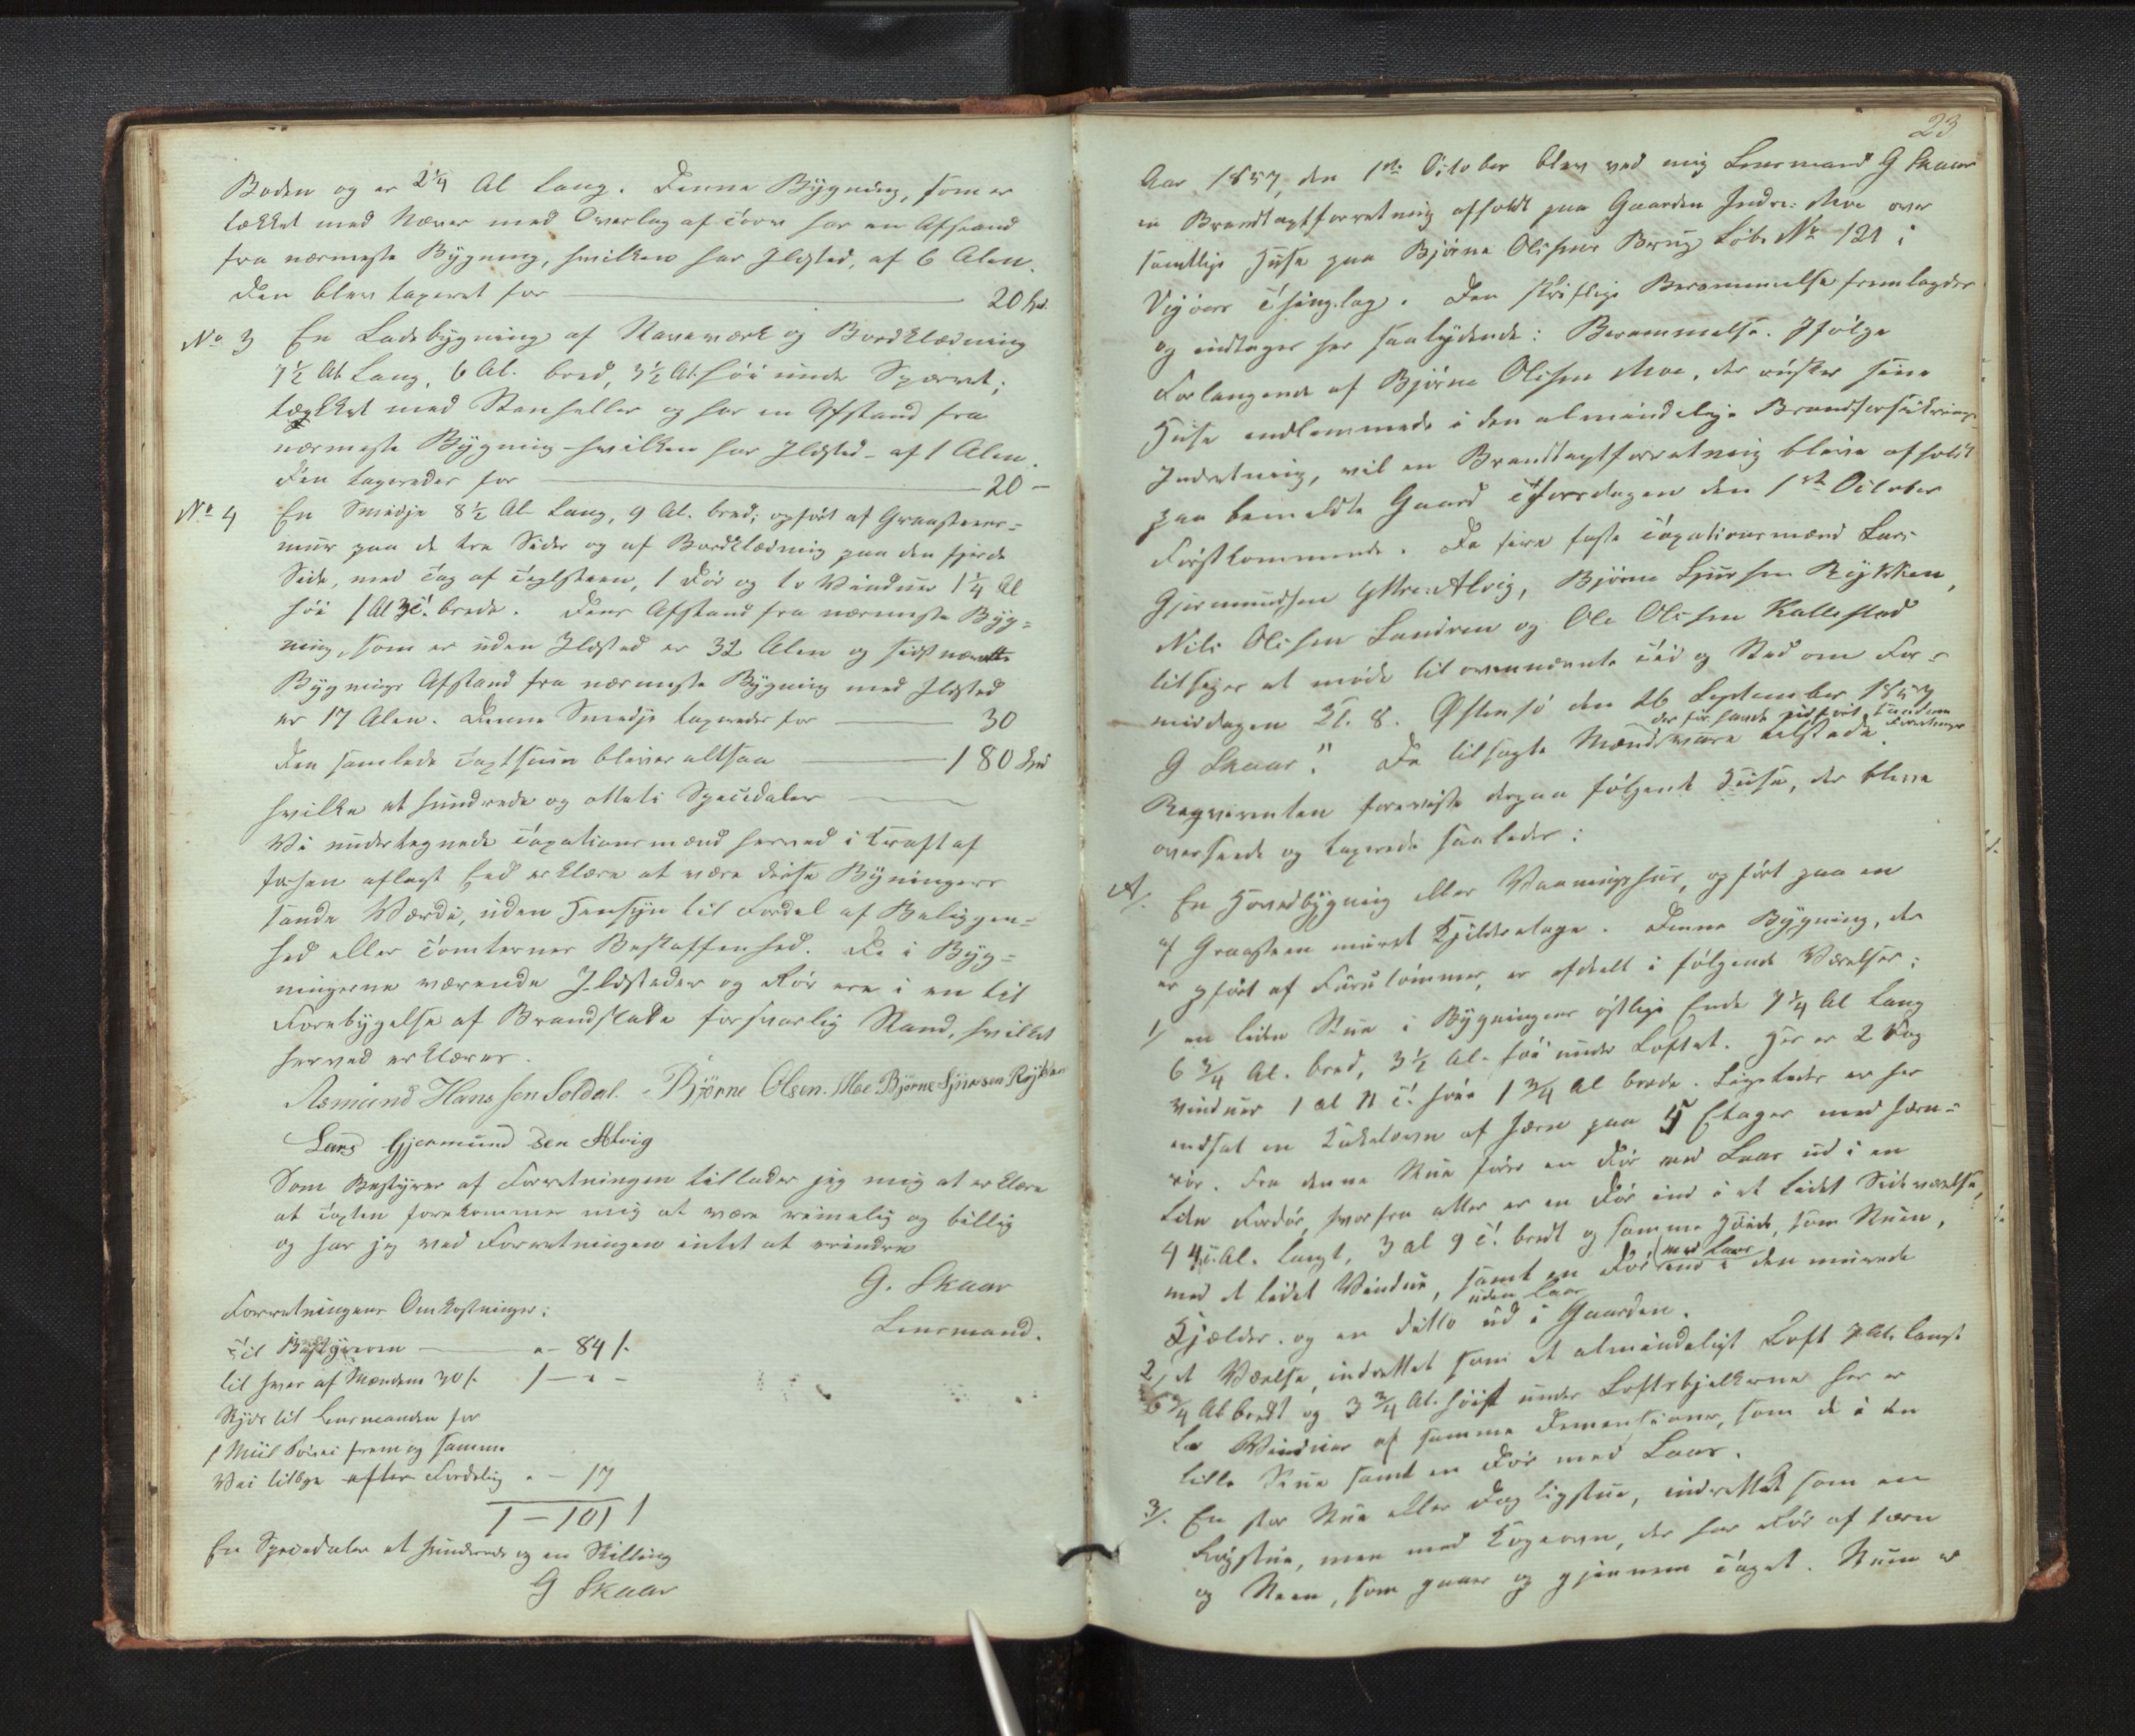 Boden og er 2 1/4 Al lang. Denne Bygning, som er
tækket med Næver med Overlag af Torv har en Afstand
fra nærmeste Bygning, hvilken har Ildsted, af 6 Alen.
Den blev taxeret for 20 Spd.
No 3 En Ladebygning af Staveværk og Bordklædning
7 1/2 Al. lang, 6 Al. bred, 3 1/2 Al. höi under Sparret;
tækket med Stenheller og har en Afstand fra
nærmeste Bygning - hvilken har Ildsted - af 1 Alen.
Den taxeredes for 20 -
No 4 En Smedje 8 1/2 Al lang, 9 Al. bred; opfört af Graasteens=
muur paa de tre Sider og af Bordklædning paa den fjerde
Side, med Tag af Teglsteen, 1 Dör og to Vinduer 1 1/4 Al
höie 1 Al 3 T. brede. Dens Afstand fra nærmeste Byg=
ning, som er uden Ildsted er 32 Alen og sidstnævnte
Bygnings Afstand fra nærmeste Bygning med Ildsted
er 17 Alen. Denne Smedje taxeredes for 30
Den samlede Taxtsum bliver altsaa 180 Spd
hvilke et hundrede og otteti Speciedaler
Vi undertegnede Taxationsmænd herved i Kraft af
forhen aflagt Eed erklære at være disse Bygningers
sande Værdi, uden Hensyn til Fordel af Beliggen=
hed eller Tomternes Beskaffenhed. De i Byg=
ningerne værende Ildsteder og Rör ere i en til
Forebygelse af Brandskade forsvarlig Stand, hvilket
herved erklæres.
Asmund Hanssen Soldal. Björne Olsen Moe Bjørne Sjursen Røykken
Lars Gjermundsen Alvig
Som Bestyrer af Forretningen tillader jeg mig at erklære
at Taxten forekommer mig at være rimelig og billig
og har jeg ved Forretningen intet at erindre
G. Skaar
Lensmand.
Forretningens Omkostninger:
Til Bestyreren " - 84 s.
til hver af Mændene 30 s. 1 - " -
Skyds til Lensmanden for
1 Miil frem og samme
Vei tilbage efter Fordeling " - 17
1 - 101 s
En Speciedaler et hundrede og en Skilling
G Skaar
23
Aar 1857, den 1ste October blev ved mig Lensmand G Skaar
en Brandtaxtforretning afholdt paa Gaarden Indre: Moe over
samtlige Huse paa Björne Olsens Brug Löbe No 121 i
Vigöers Thinglag. Den skriftlige Berammelse fremlagdes
og indtages her saalydende: Berammelse. Ifölge
Forlangende af Björne Olsen Moe, der önsker sine
Huse indlemmede i den almindelige Brandforsikrings-
Indretning, vil en Brandtaxtforretning blive afholdt
paa bemeldte Gaard Thorsdagen den 1ste October
förstkommende. De fire faste Taxationsmænd Lars
Gjermundsen Yttre: Alvig, Björne Sjursen Røykken,
Nils Olsen Sandven og Ole Olsen Kallestad
tilsiges at möde til ovennævnte Tid og Sted om For=
middagen Kl. 8. Östensö den 26 September 1857
G Skaar." De tilsagte Mænd vare tilstede
der för havde udfört saadan Forretninger
Reqvirenten foreviste derpaa fölgende Huse, der bleve
overseede og taxerede saaledes:
A/. En Hovedbygning eller Vaaningshus, opfört paa en
af Graasteen muret Kjelderetage. Denne Bygning, der
er opfört af Furutömmer, er afdeelt i fölgende Værelser:
1/ en liden Stue i Bygningens östlige Ende 7 1/4 Al lang
6 3/4 Al. bred, 3 1/2 Al. höi under Loftet. Her er 2 Fag
Vinduer 1 Al 11 T. höie 1 3/4 Al brede. Ligeledes er her
indsat en Kakelovn af Jern paa 4 Etager med Jern=
rör. Fra denne Stue förer en Dör med Laas ud i en
liden Fordör, hvorfra atter er en Dör ind i et lidet Sideværelse,
4 Al. langt, 3 Al 9 T. bredt og samme Höide, som Stuen,
med et lidet Vindue, samt en Dör (med Laas) ind i den murede
Kjælder. og en ditto uden Laas ud i Gaarden.
2, et Værelse, indrettet som et almindeligt Loft 7 Al. langt
6 3/4 Al bredt og 3 3/4 Al. höit under Loftsbjelkerne her er
to Vinduer af samme Dimensioner, som de i den
lille Stue samt en Dör med Laas.
3/. En stor Stue eller Dagligstue, indrettet som en
Rögstue, men med Kogeovn, der har Rör af Jern
og Steen, som gaaer op gjennem Taget. Stuen er